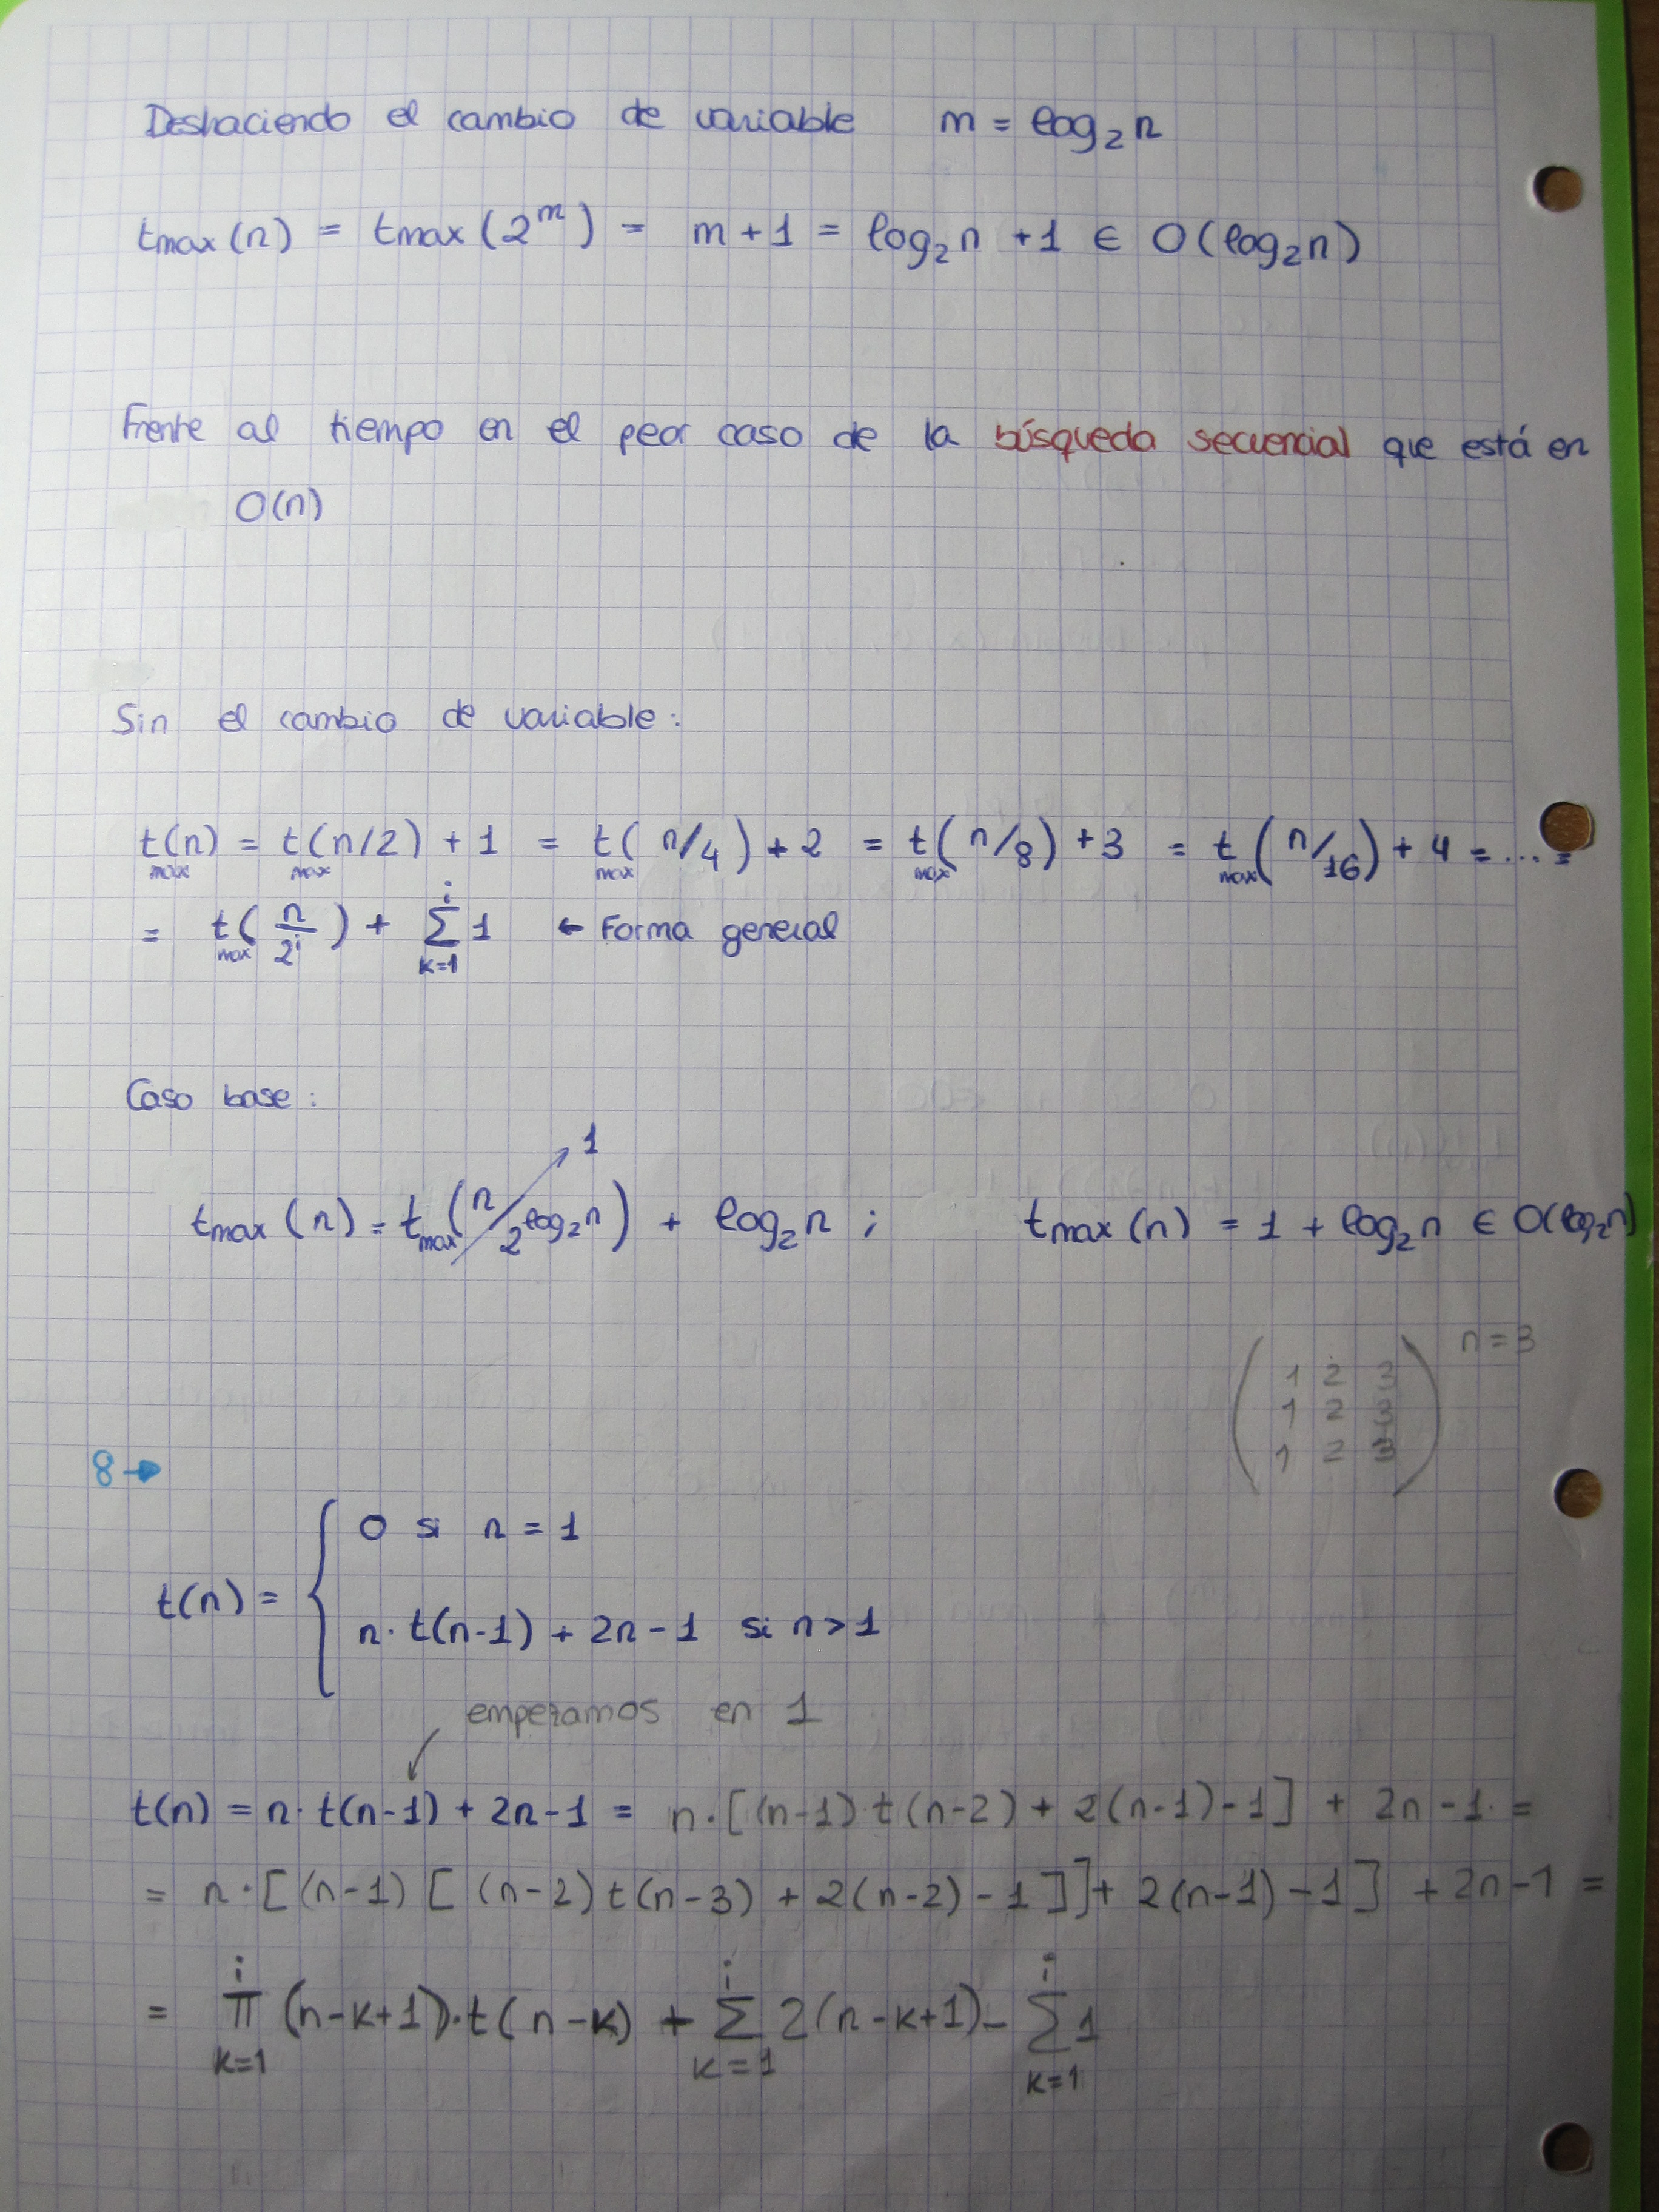 Deshaciendo el cambio de variable m = log₂ n
tmax (n) = tmax (2^m) = m + 1 = log₂ n + 1 ∈ O(log₂ n)
Frente al tiempo en el peor caso de la búsqueda secuencial que está en
O(n)
Sin el cambio de variable:
tmax(n) = tmax(n/2) + 1 = tmax(n/4) + 2 = tmax(n/8) + 3 = tmax(n/16) + 4 = ... =
= tmax(n/2^i) + ∑_{k=1}^{i} 1 ← Forma general
Caso base:
1
tmax (n) = tmax(n/2^{log₂ n}) + log₂ n ; tmax (n) = 1 + log₂ n ∈ O(log₂ n)
n = 3
1 2 3
1 2 3
1 2 3
8 →
0 si n = 1
t(n) =
n · t(n-1) + 2n - 1 si n > 1
empezamos en 1
t(n) = n · t(n-1) + 2n - 1 = n · [(n-1) · t(n-2) + 2(n-1) - 1] + 2n - 1 =
= n · [(n-1) [(n-2) t(n-3) + 2(n-2) - 1]] + 2(n-1) - 1] + 2n - 1 =
= ∏_{k=1}^{i} (n-k+1) · t(n-k) + ∑_{k=1}^{i} 2(n-k+1) - ∑_{k=1}^{i} 1